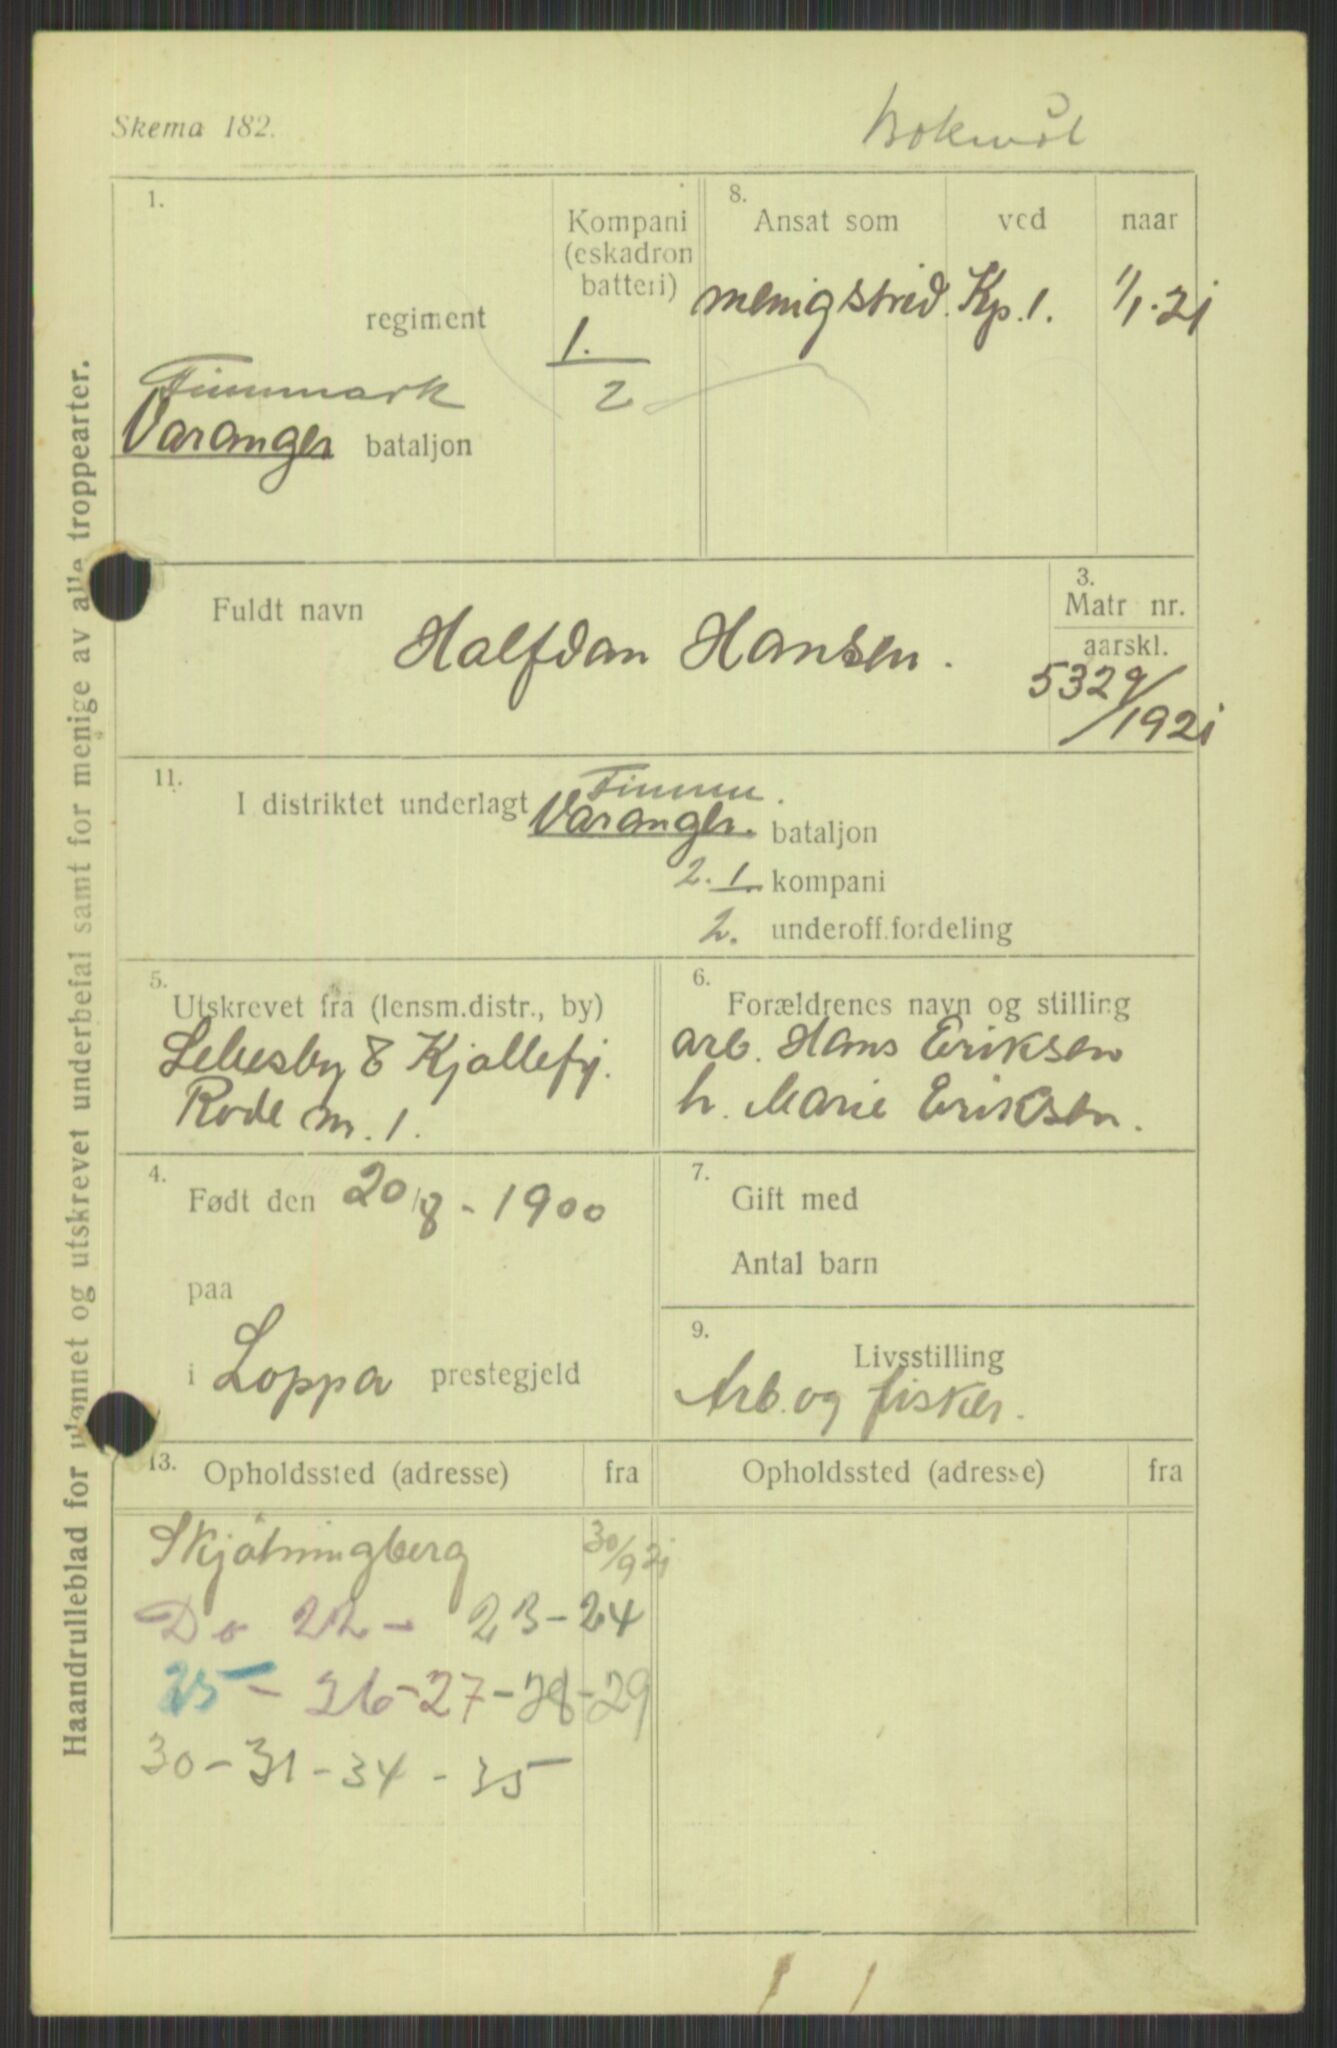 Skema 182.
bokmål
1.
regiment
Finnmark
Varanger bataljon
Kompani
(eskadron
batteri)
1.
2
8.
Ansat som
ved
naar
menig strid. Kp. 1. 1/1.21
Fuldt navn
Halfdan Hansen.
3.
Matr nr.
aarskl.
5329/
/1921
11.
Finnm.
I distriktet underlagt Varanger. bataljon
2. 1. kompani
2. underoff.fordeling
5.
Utskrevet fra (lensm.distr., by)
Lebesby & Kjøllefj.
Rode nr. 1.
6.
Forældrenes navn og stilling
arb. Hans Eriksen
h. Marie Eriksen.
4.
Født den 20/8 - 1900
paa
i Loppa prestegjeld
7.
Gift med
Antal barn
9.
Livsstilling
Arb. og fisker.
13.
Opholdssted (adresse)
fra
Opholdssted (adresse)
fra
Skjötningberg 30/9 21
Do 22 - 23-24
25 - 26-27-28-29
30-31-34-35
Haandrulleblad for utsett og utskrevet underbefal samt for menige av alle troppearter.